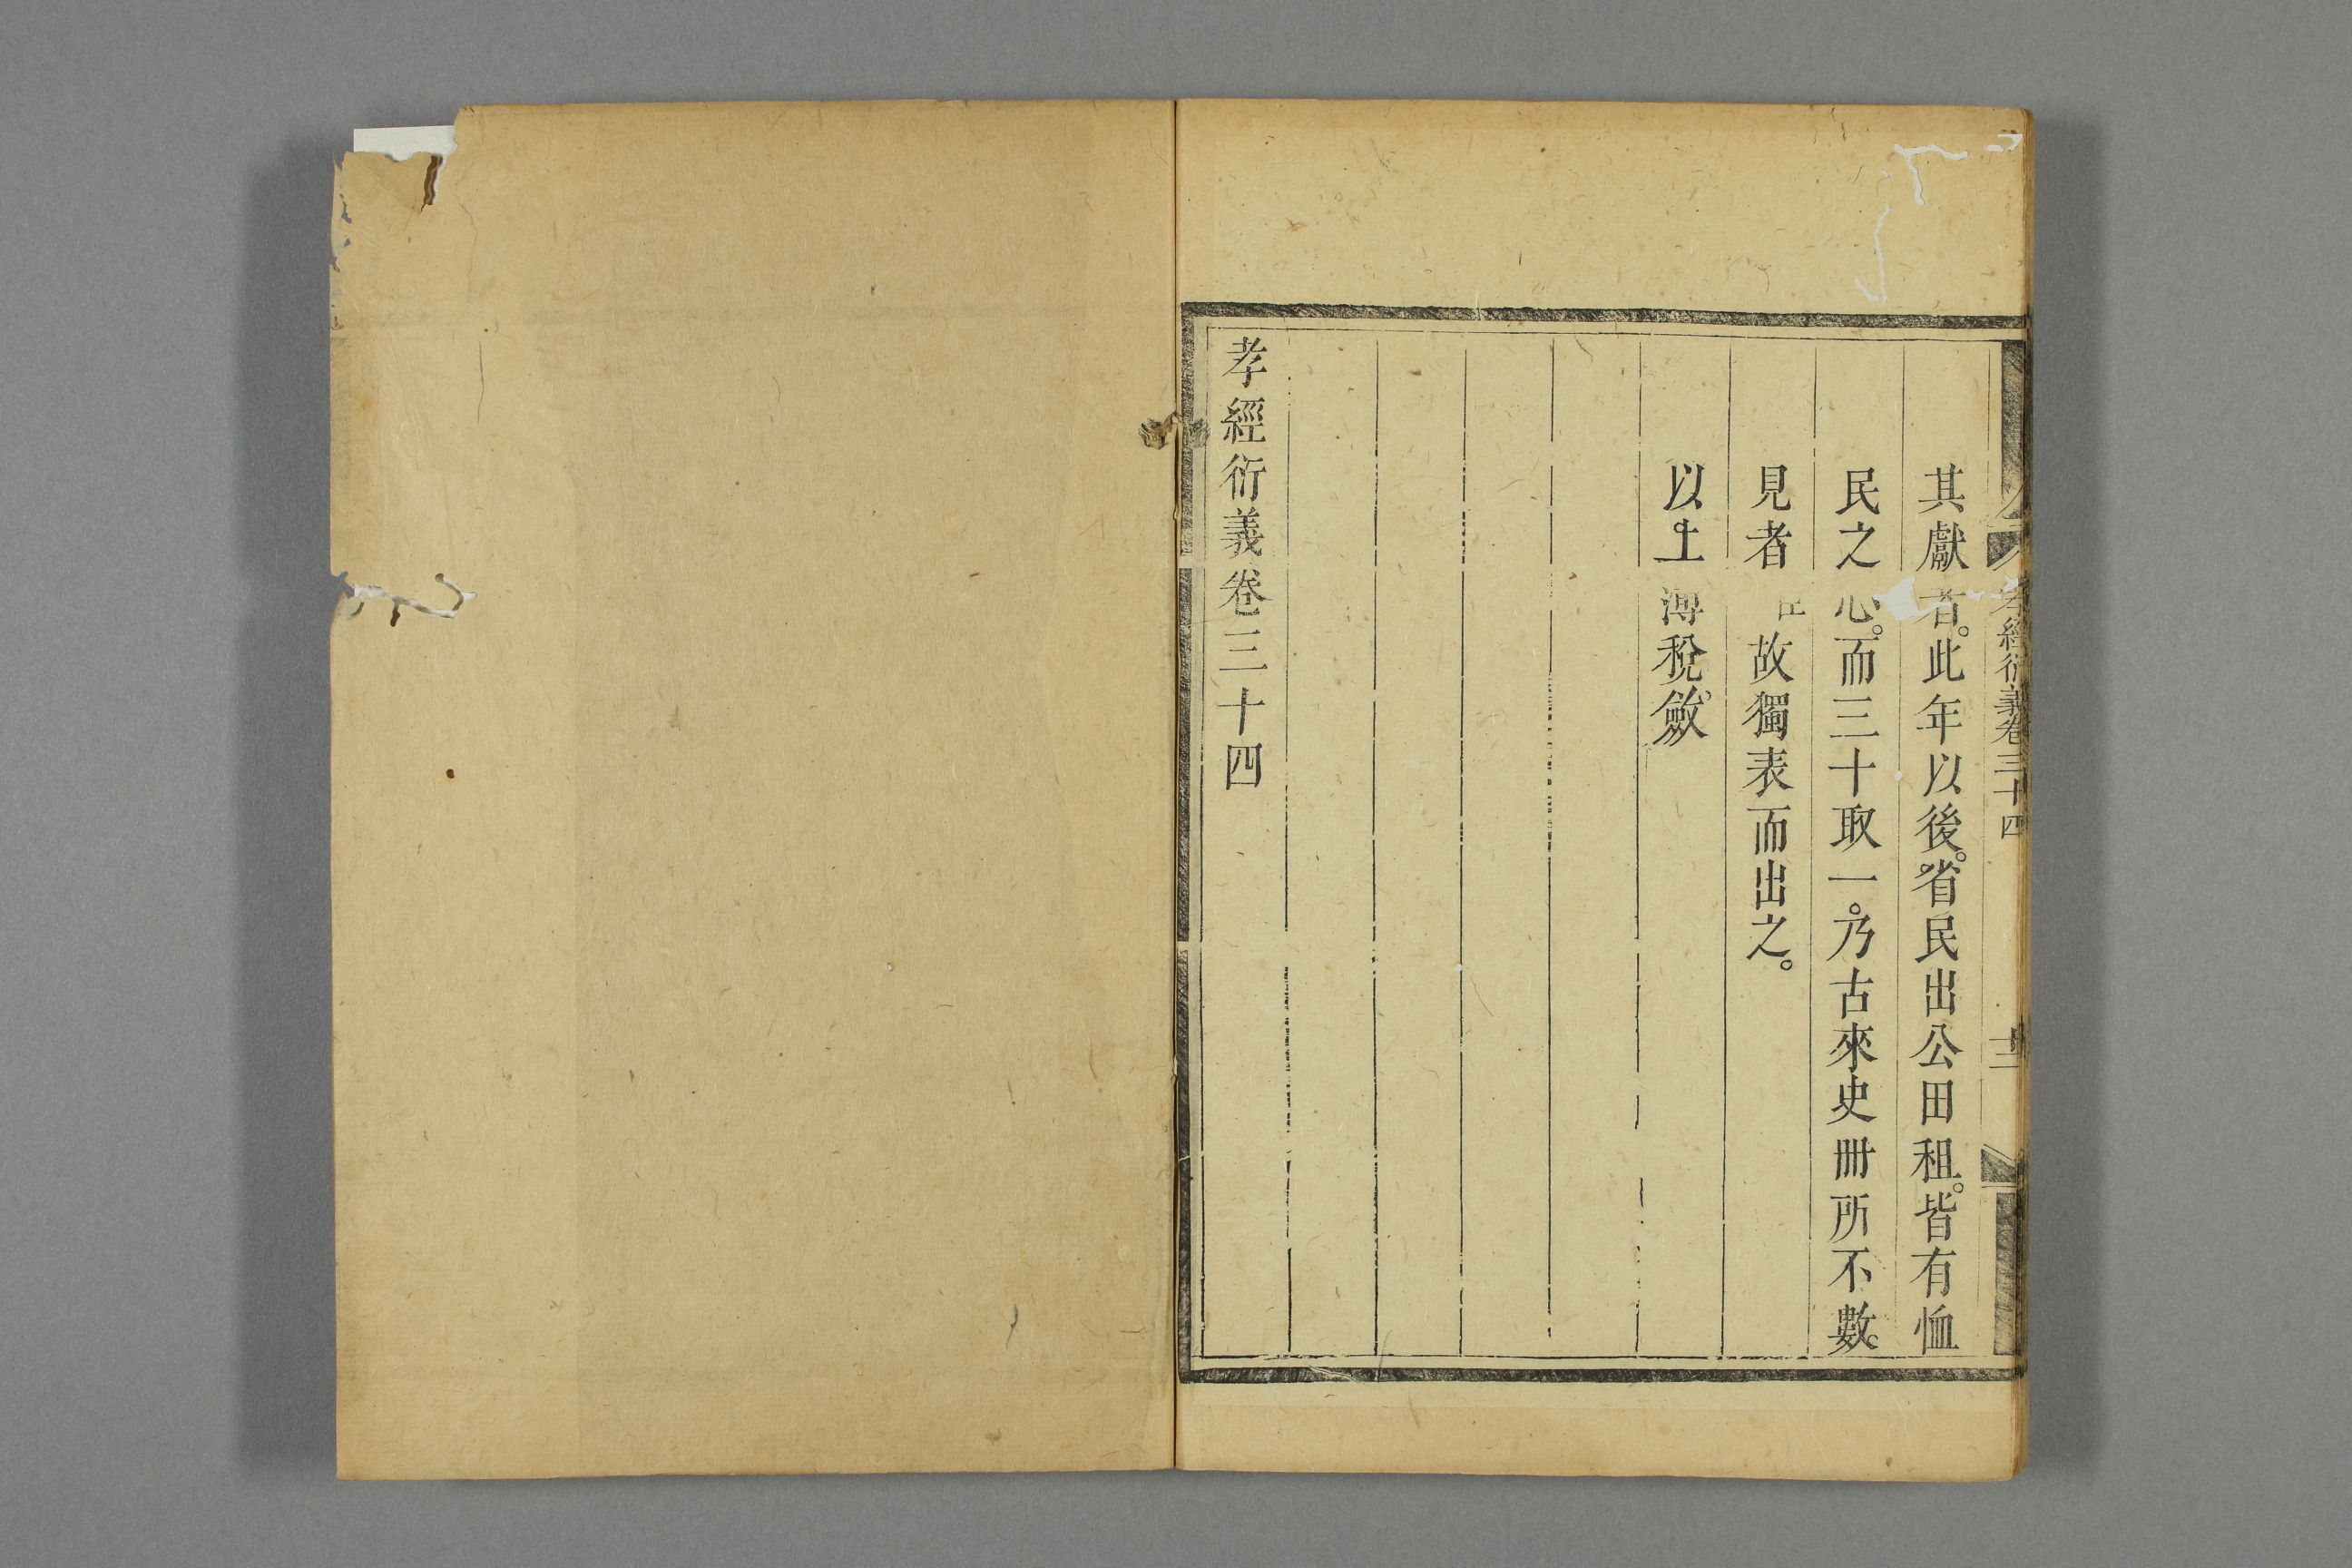 孝經衍義卷三十四
十二
其獻者。此年以後。省民出公田租。皆有恤
民之心。而三十取一。乃古來史冊所不數。
見者 故獨表而出之。
以上薄稅斂
孝經衍義卷三十四